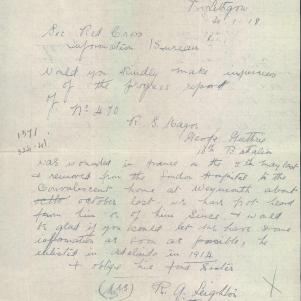 4.1.18
Sec Red Cross
Information Bureau
Would you kindly make inquiries
of the progress report
of No 490
R. S.
George Guthrie
Battalion
was wounded in France on the 8th May last
& removed from the London Hospital to the
Convalescent home at Weymouth about
October last, we has not heard
from him or of him since. I would
be glad if you could let me have some
information as soon as possible, he
enlisted in Adelaide in 1914
& oblige his fond Sister
R. G. Leighton